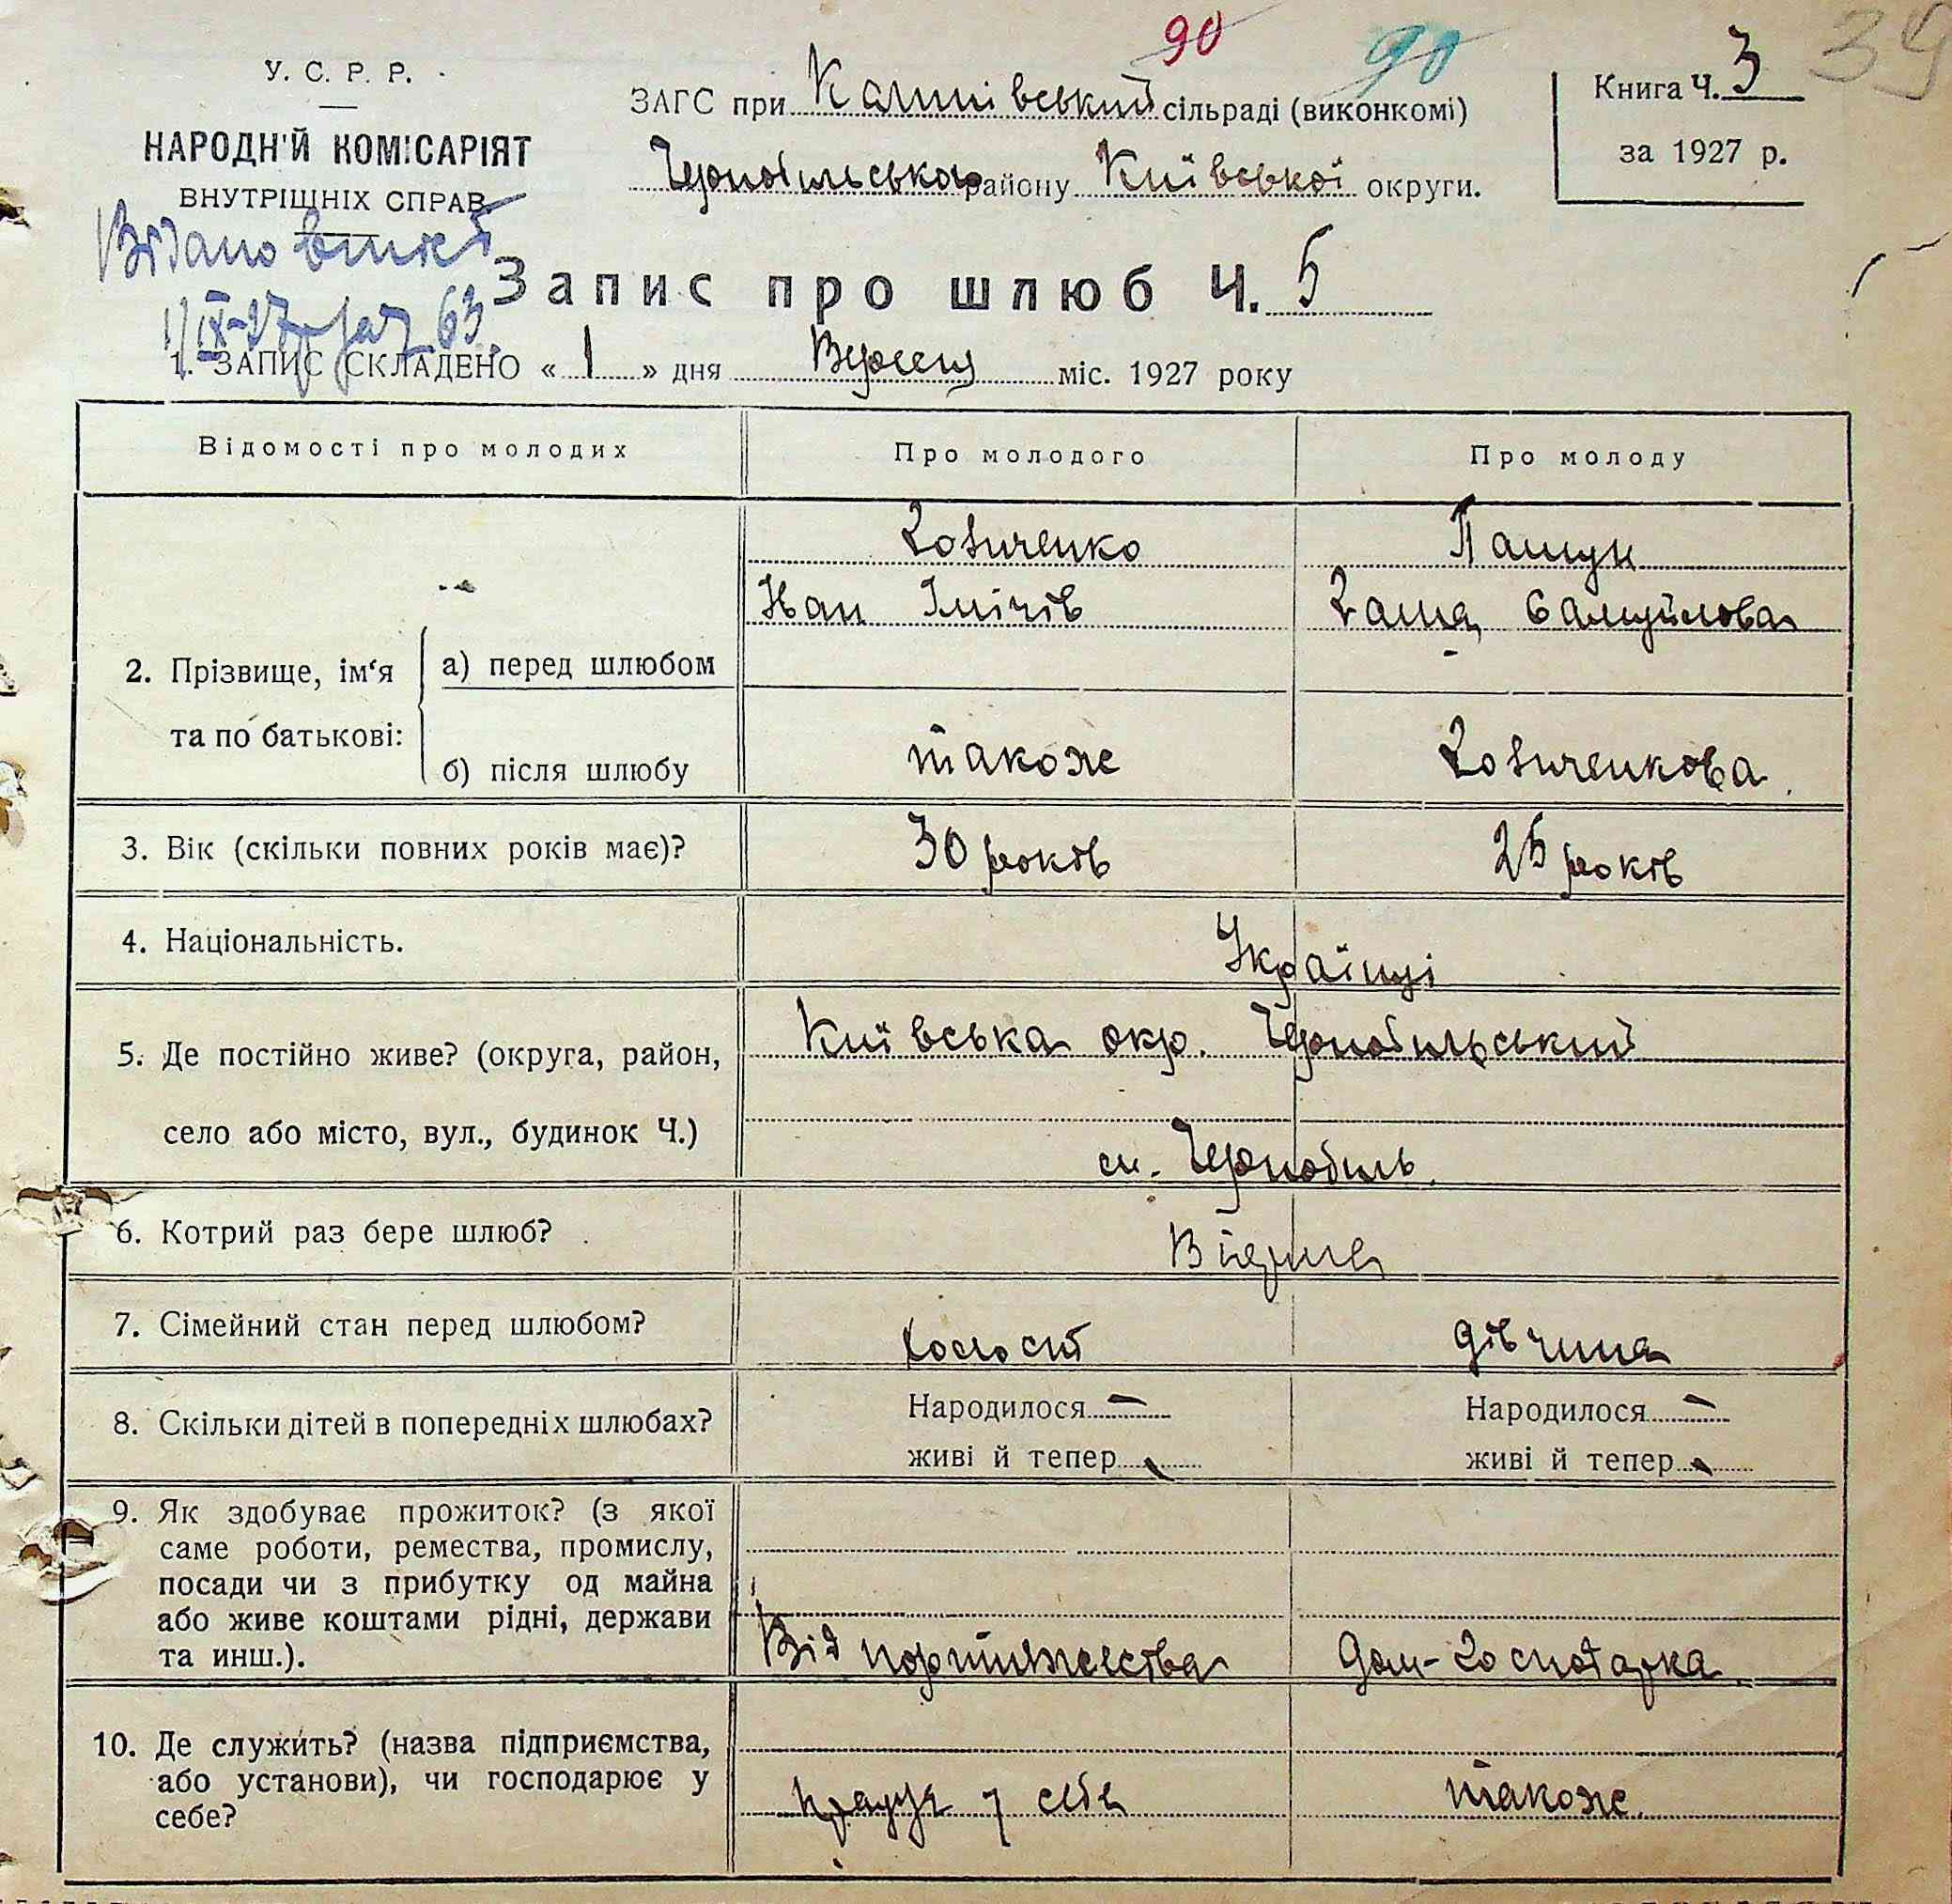 90 90 39
У. С. Р. Р.
НАРОДНІЙ КОМІСАРІЯТ
ВНУТРІШНІХ СПРАВ
ЗАГС при сільраді (виконкомі)
Чорнобильського району Київської округи.
Книга Ч. 3
за 1927 р.
Видано
1/IX-27 р. 63.
Запис про шлюб Ч. 5
1. ЗАПИС СКЛАДЕНО « 1 » дня Вересня міс. 1927 року
Відомості про молодих Про молодого Про молоду
2. Прізвище, ім‘я та по батькові:
а) перед шлюбом
Самуйлова
б) після шлюбу
також
3. Вік (скільки повних років має)? 30 років 25 років
4. Національність. Українці
5. Де постійно живе? (округа, район,
село або місто, вул., будинок Ч.)
Київська окр. Чорнобильський
м. Чорнобиль.
6. Котрий раз бере шлюб?
7. Сімейний стан перед шлюбом? дівчина
8. Скільки дітей в попередніх шлюбах? Народилося — Народилося —
живі й тепер живі й тепер
9. Як здобуває прожиток? (з якої
саме роботи, ремества, промислу,
посади чи з прибутку од майна
або живе коштами рідні, держави
та инш.).
Від дом-господарка
10. Де служить? (назва підприємства,
або установи), чи господарює у
себе?
працує у себе також